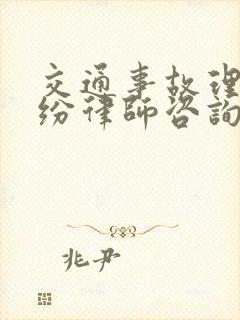 交通事故理
纷律师咨询
兆尹